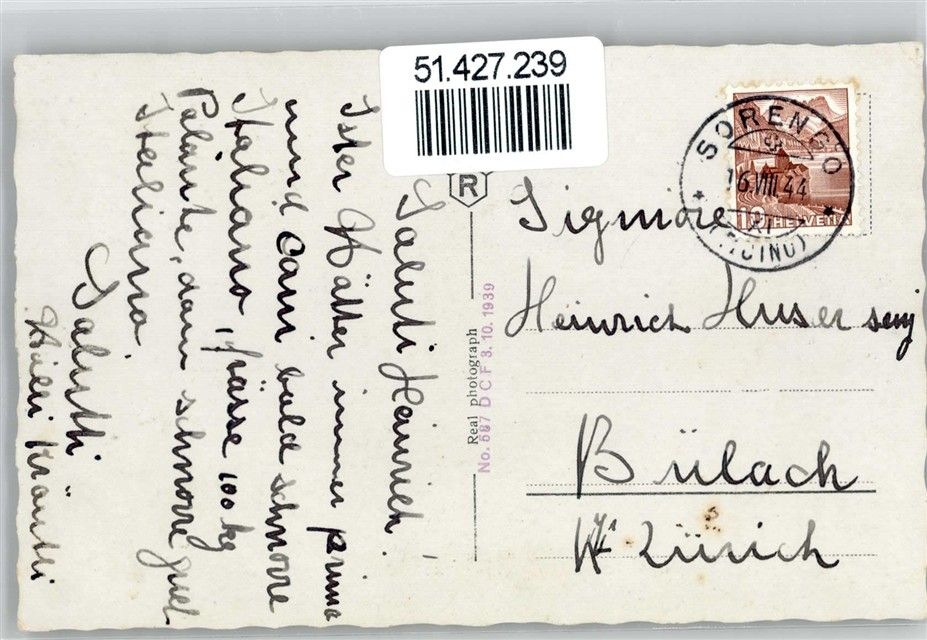 51.427.239
Saluti Heinrich.
Ister Wätter immer prima
und Cani bald schnorre
Italiano, frässe 100 kg
Palänte, dann schnorre guet
Italiano
Saluti
R
Real photograph
No. 597 D C F 3. 10. 1939
SORENGO
16.VIII.44
(TICINO)
10
HELVETIA
Signore
Heinrich Huser senj
Bülach
Kt Zürich